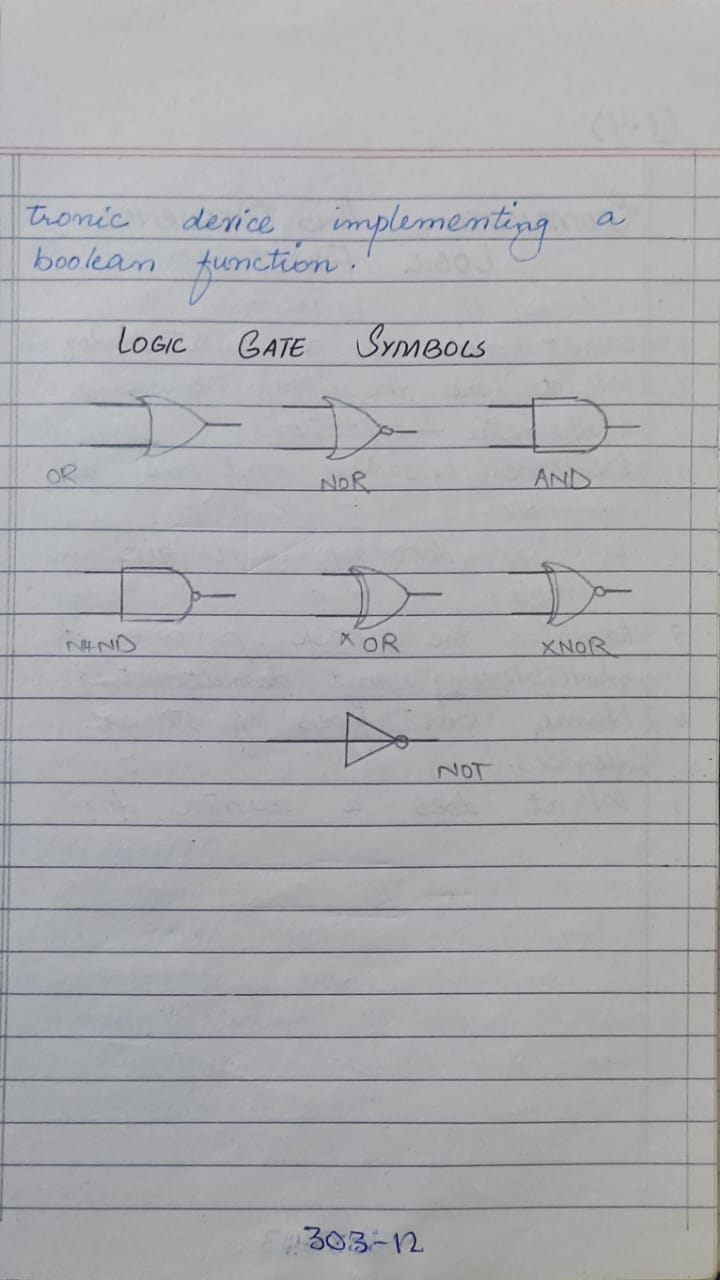 tronic device implementing a
boolean function.
LOGIC GATE SYMBOLS
OR NOR AND
NAND XOR XNOR
NOT
303-12